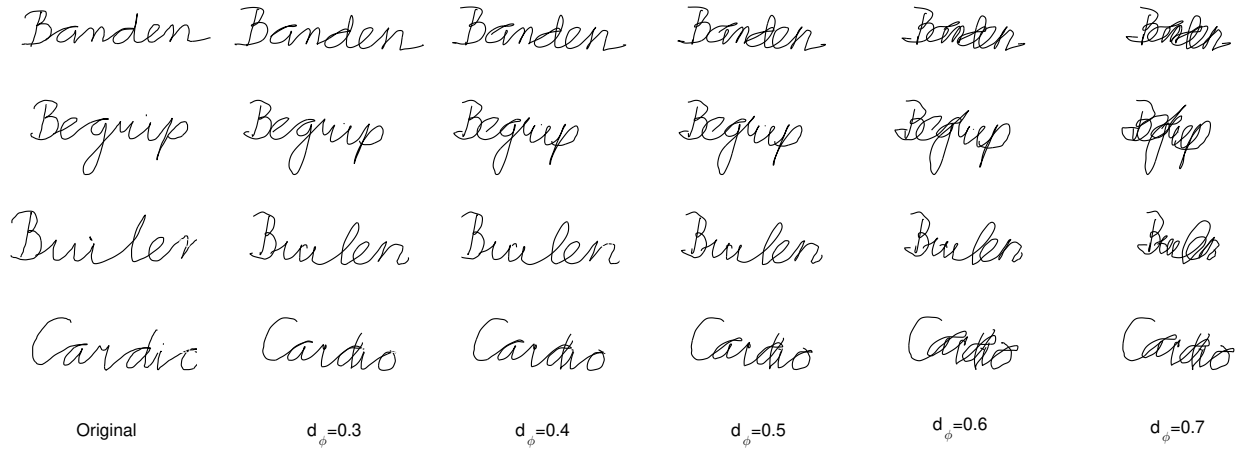 Banden Banden Banden Banden Banden Banden
Begrip Begrip Begrip Begrip Begrip Begrip
Builen Builen Builen Builen Builen Builen
Cardio Cardio Cardio Cardio Cardio Cardio
Original dϕ=0.3 dϕ=0.4 dϕ=0.5 dϕ=0.6 dϕ=0.7